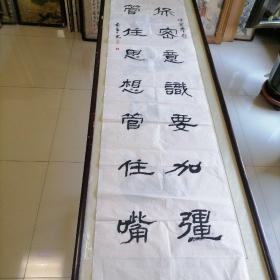 保密意識要加彊
管住思想管住嘴